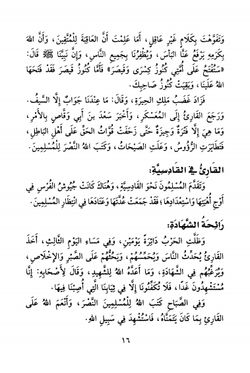 وَتَفَوَّهْتَ بِكَلَامٍ غَيْرِ عَاقِلٍ، أَمَا عَلِمْتَ أَنَّ الْعَاقِبَةَ لِلْمُتَّقِينَ، وَأَنَّ اللهَ
بِكَرَمِهِ يَرْفَعُ عَنَّا الْبَأْسَ، وَيُظْفِرُنَا بِجَمِيعِ النَّاسِ، وَإِنَّ نَبِيَّنَا ﷺ قَالَ:
«سَتُفْتَحُ عَلَى أُمَّتِي كُنُوزُ كِسْرَى وَقَيْصَرَ» فَأَمَّا كُنُوزُ قَيْصَرَ فَقَدْ فَتَحَهَا
اللهُ عَلَيْنَا، وَبَقِيَتْ كُنُوزُ صَاحِبِكَ.
فَزَادَ غَضَبُ مَلِكِ الْحِيرَةِ، وَقَالَ: مَا عِنْدَنَا جَوَابٌ إِلَّا السَّيْفُ.
وَرَجَعَ الْقَارِئُ إِلَى الْمُعَسْكَرِ، وَأَخْبَرَ سَعْدَ بْنَ أَبِي وَقَّاصٍ بِالْأَمْرِ،
وَمَا هِيَ إِلَّا فَتْرَةٌ وَجِيزَةٌ حَتَّى زَحَفَتْ قُوَّاتُ الْحَقِّ عَلَى أَهْلِ الْبَاطِلِ،
فَتَطَايَرَتِ الرُّءُوسُ، وَعَلَتِ الصَّيْحَاتُ، وَكَتَبَ اللهُ النَّصْرَ لِلْمُسْلِمِينَ.
الْقَارِئُ فِي الْقَادِسِيَّةِ:
وَتَقَدَّمَ الْمُسْلِمُونَ نَحْوَ الْقَادِسِيَّةِ، وَهُنَاكَ كَانَتْ جُيُوشُ الْفُرْسِ فِي
أَوْجِ أُهْبَتِهَا وَاسْتِعْدَادِهَا، فَقَدْ جَمَعَتْ عُدَّتَهَا وَعَتَادَهَا فِي انْتِظَارِ الْمُسْلِمِينَ.
رَائِحَةُ الشَّهَادَةِ:
وَظَلَّتِ الْحَرْبُ دَائِرَةً يَوْمَيْنِ، وَفِي مَسَاءِ الْيَوْمِ الثَّالِثِ، أَخَذَ
الْقَارِئُ يُحَدِّثُ النَّاسَ وَيُحَمِّسُهُمْ، وَيَحُثُّهُمْ عَلَى الصَّبْرِ وَالنَّصْرِ،
وَيُرَغِّبُهُمْ فِي الشَّهَادَةِ، وَمَا أَعَدَّهُ اللهُ لِلشَّهِيدِ، وَقَالَ لِأَصْحَابِهِ: إِنَّا
مُسْتَشْهِدُونَ غَدًا، فَلَا تُكَفِّنُونَا إِلَّا فِي ثِيَابِنَا الَّتِي أُصِبْنَا فِيهَا.
وَفِي الصَّبَاحِ كَتَبَ اللهُ لِلْمُسْلِمِينَ النَّصْرَ، وَأَنْعَمَ اللهُ عَلَى
الْقَارِئِ بِمَا كَانَ يَتَمَنَّاهُ، فَاسْتُشْهِدَ فِي سَبِيلِ اللهِ.
١٦